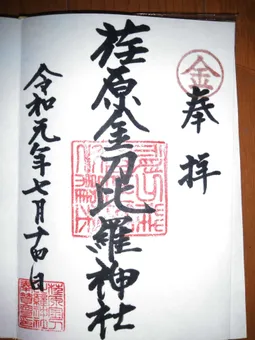 奉拝
金
荏原金刀比羅神社
令和元年七月十四日